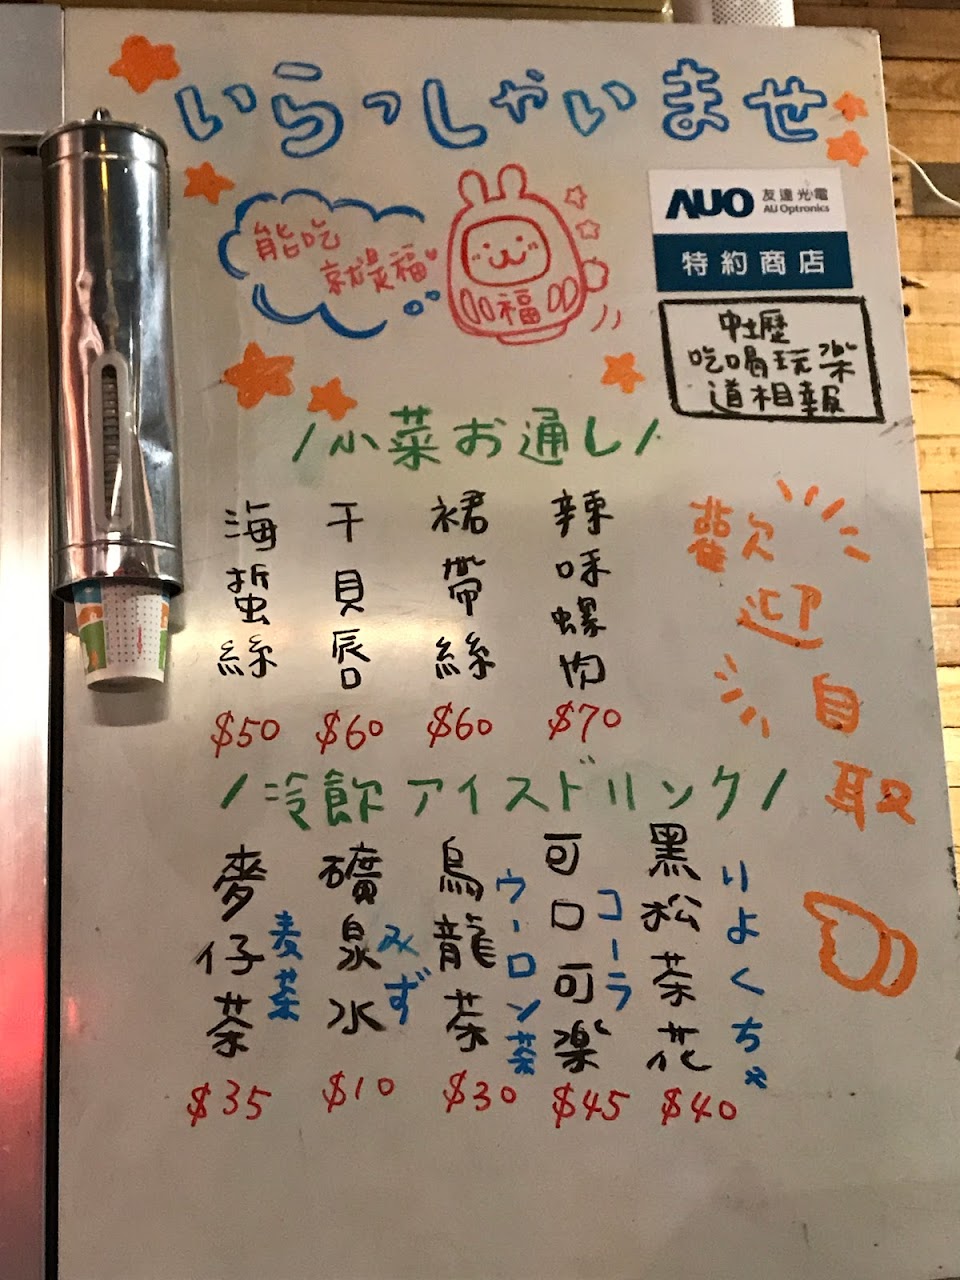 いらっしゃいませ
能吃
就是福
福
AUO 友達光電
AU Optronics
特約商店
中壢
吃喝玩樂
道相報
小菜お通し
海蜇絲
$50
干貝唇
$60
裙帶絲
$60
辣味螺肉
$70
歡迎自取
冷飲アイスドリンク
麥仔茶
麦茶
$35
礦泉水
みず
$10
烏龍茶
ウーロン茶
$30
可口可樂
コーラ
$45
黑松茶花
りよくちゃ
$40